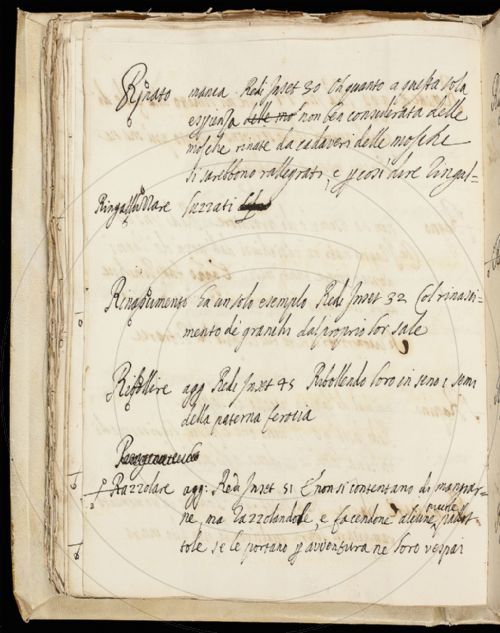 Rinato manca. Redi Inset 30 Oh quanto a questa sola
esperienza delle mo non ben considerata delle
mosche rinate da cadaveri delle mosche
si sarebbono rallegrati, e p così dire Ringal-
Ringalluzzare luzzati
Rinascimento ha un solo esempio Redi Inset 32 Col rinasci-
mento de granchi dal proprio lor sale
Ribollire agg Redi Inset 45 Ribollendo loro in seno i semi
della paterna ferocia
Razzolare agg: Redi Inset 51 E non si contentano di mangiar-
ne, ma razzolandole, e facendone alcune piccole pallot
tole se le portano p avventura ne loro vespai